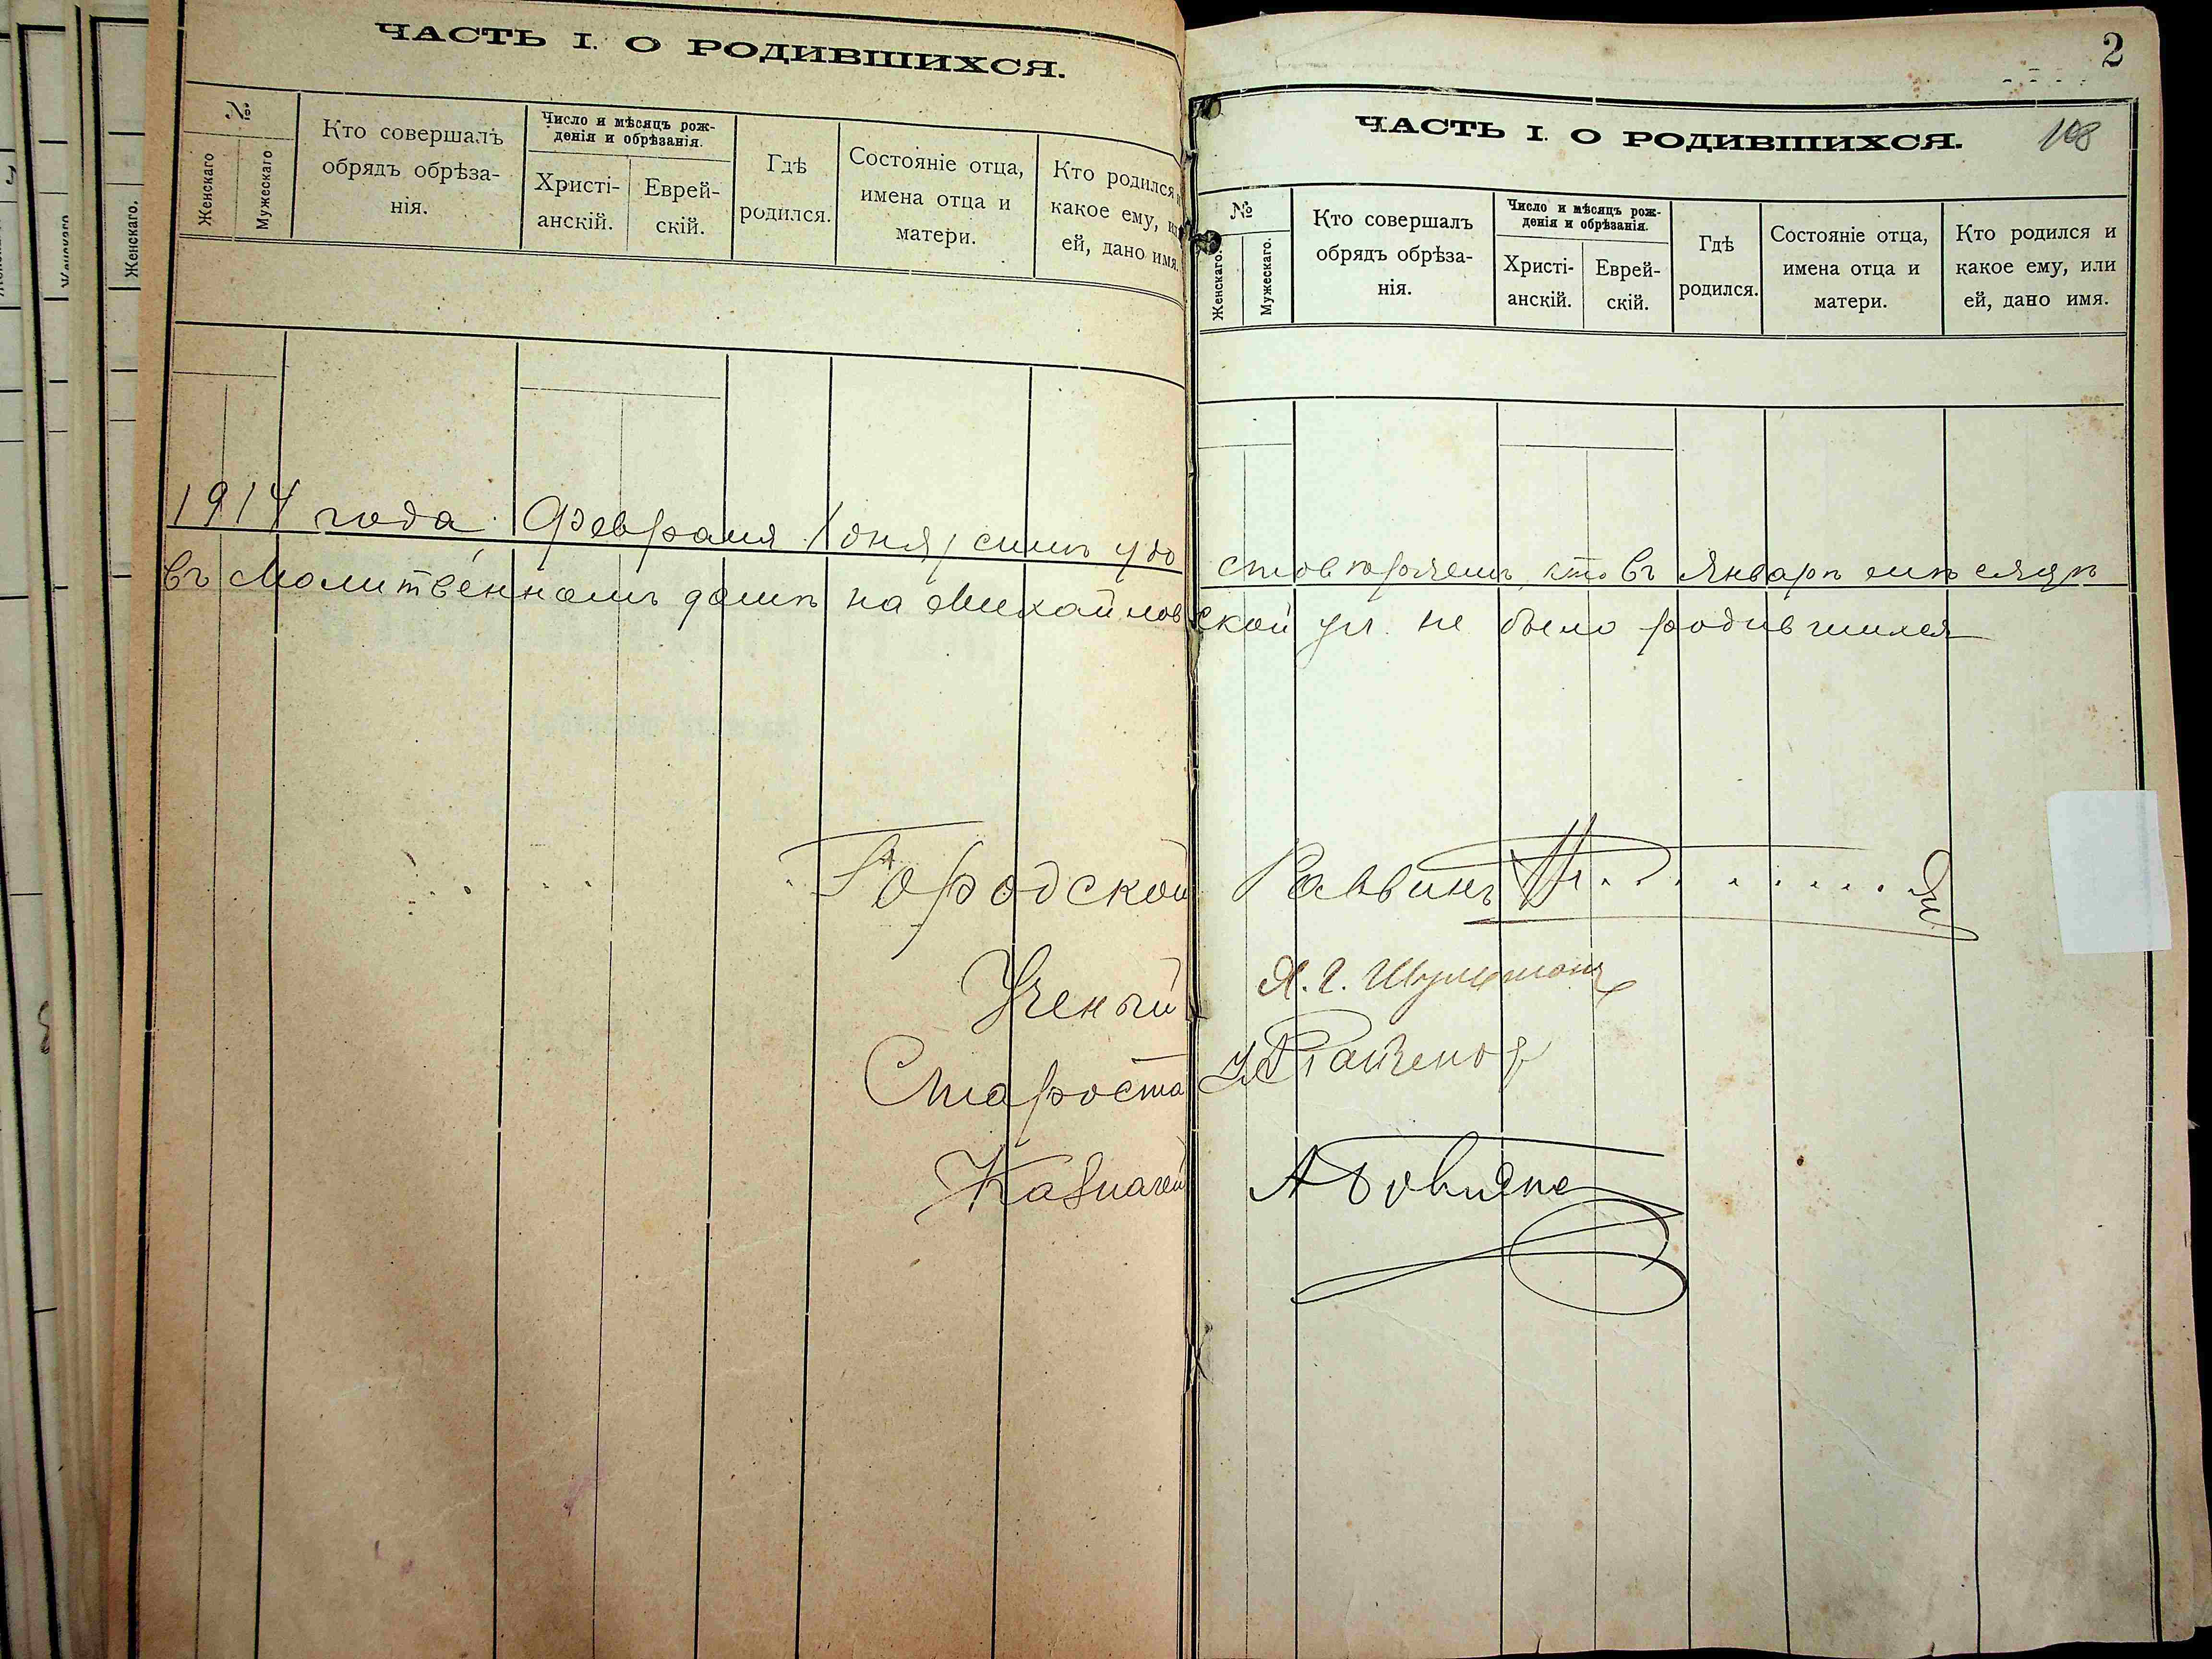 ЧАСТЬ I. О РОДИВШИХСЯ.
№
Женскаго
Мужескаго
Кто совершалъ
обрядъ обрѣза-
нія.
Число и мѣсяцъ рож-
денія и обрѣзанія.
Христі-
анскій.
Еврей-
скій.
Гдѣ
родился.
Состояніе отца,
имена отца и
матери.
Кто родился и
какое ему,
ей, дано имя.
2
108
ЧАСТЬ I. О РОДИВШИХСЯ.
№
Женскаго.
Мужескаго.
Кто совершалъ
обрядъ обрѣза-
нія.
Число и мѣсяцъ рож-
денія и обрѣзанія.
Христі-
анскій.
Еврей-
скій.
Гдѣ
родился.
Состояніе отца,
имена отца и
матери.
Кто родился и
какое ему, или
ей, дано имя.
1914 года Февраля 1 дня симъ удостовѣряемъ что въ Январѣ мѣсяцѣ
въ Молитвенномъ домѣ на Михайловской ул. не было родившихся
Городской Раввинъ
Ученый Я. Г. Шульманъ
Староста
Казначей
Женскаго.